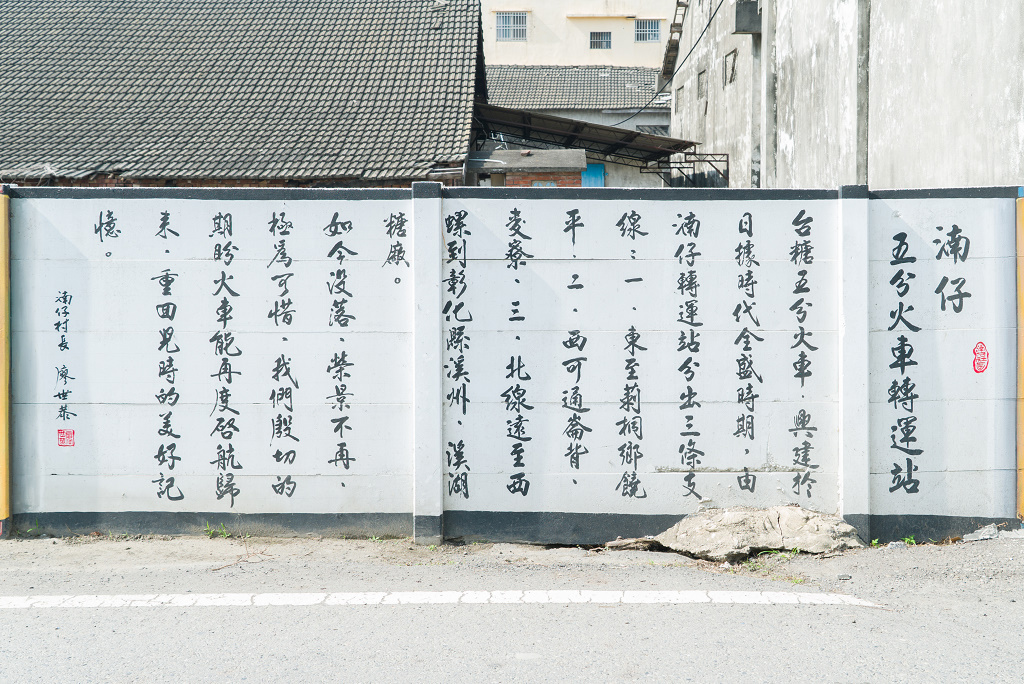 湳仔
五分火車轉運站
台糖五分火車．興建於
日據時代全盛時期，由
湳仔轉運站分出三條支
線：一、東至莿桐鄉饒
平．二、西可通崙背、
麥寮、三、北線遠至西
螺到彰化縣溪州、溪湖
糖廠。
如今没落、榮景不再、
極為可惜、我們殷切的
期盼火車能再度啓航歸
來．重回兒時的美好記
憶。
湳仔村長 廖世恭